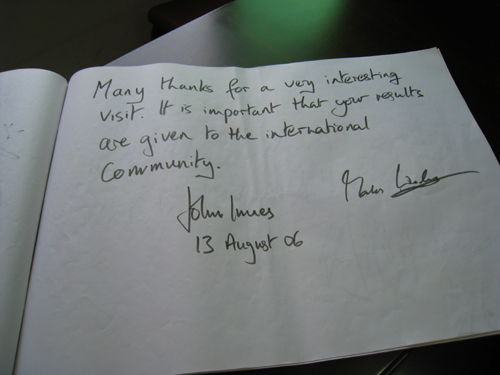 Many thanks for a very interesting
visit. It is important that your results
are given to the international
Community.
John Innes
13 August 06